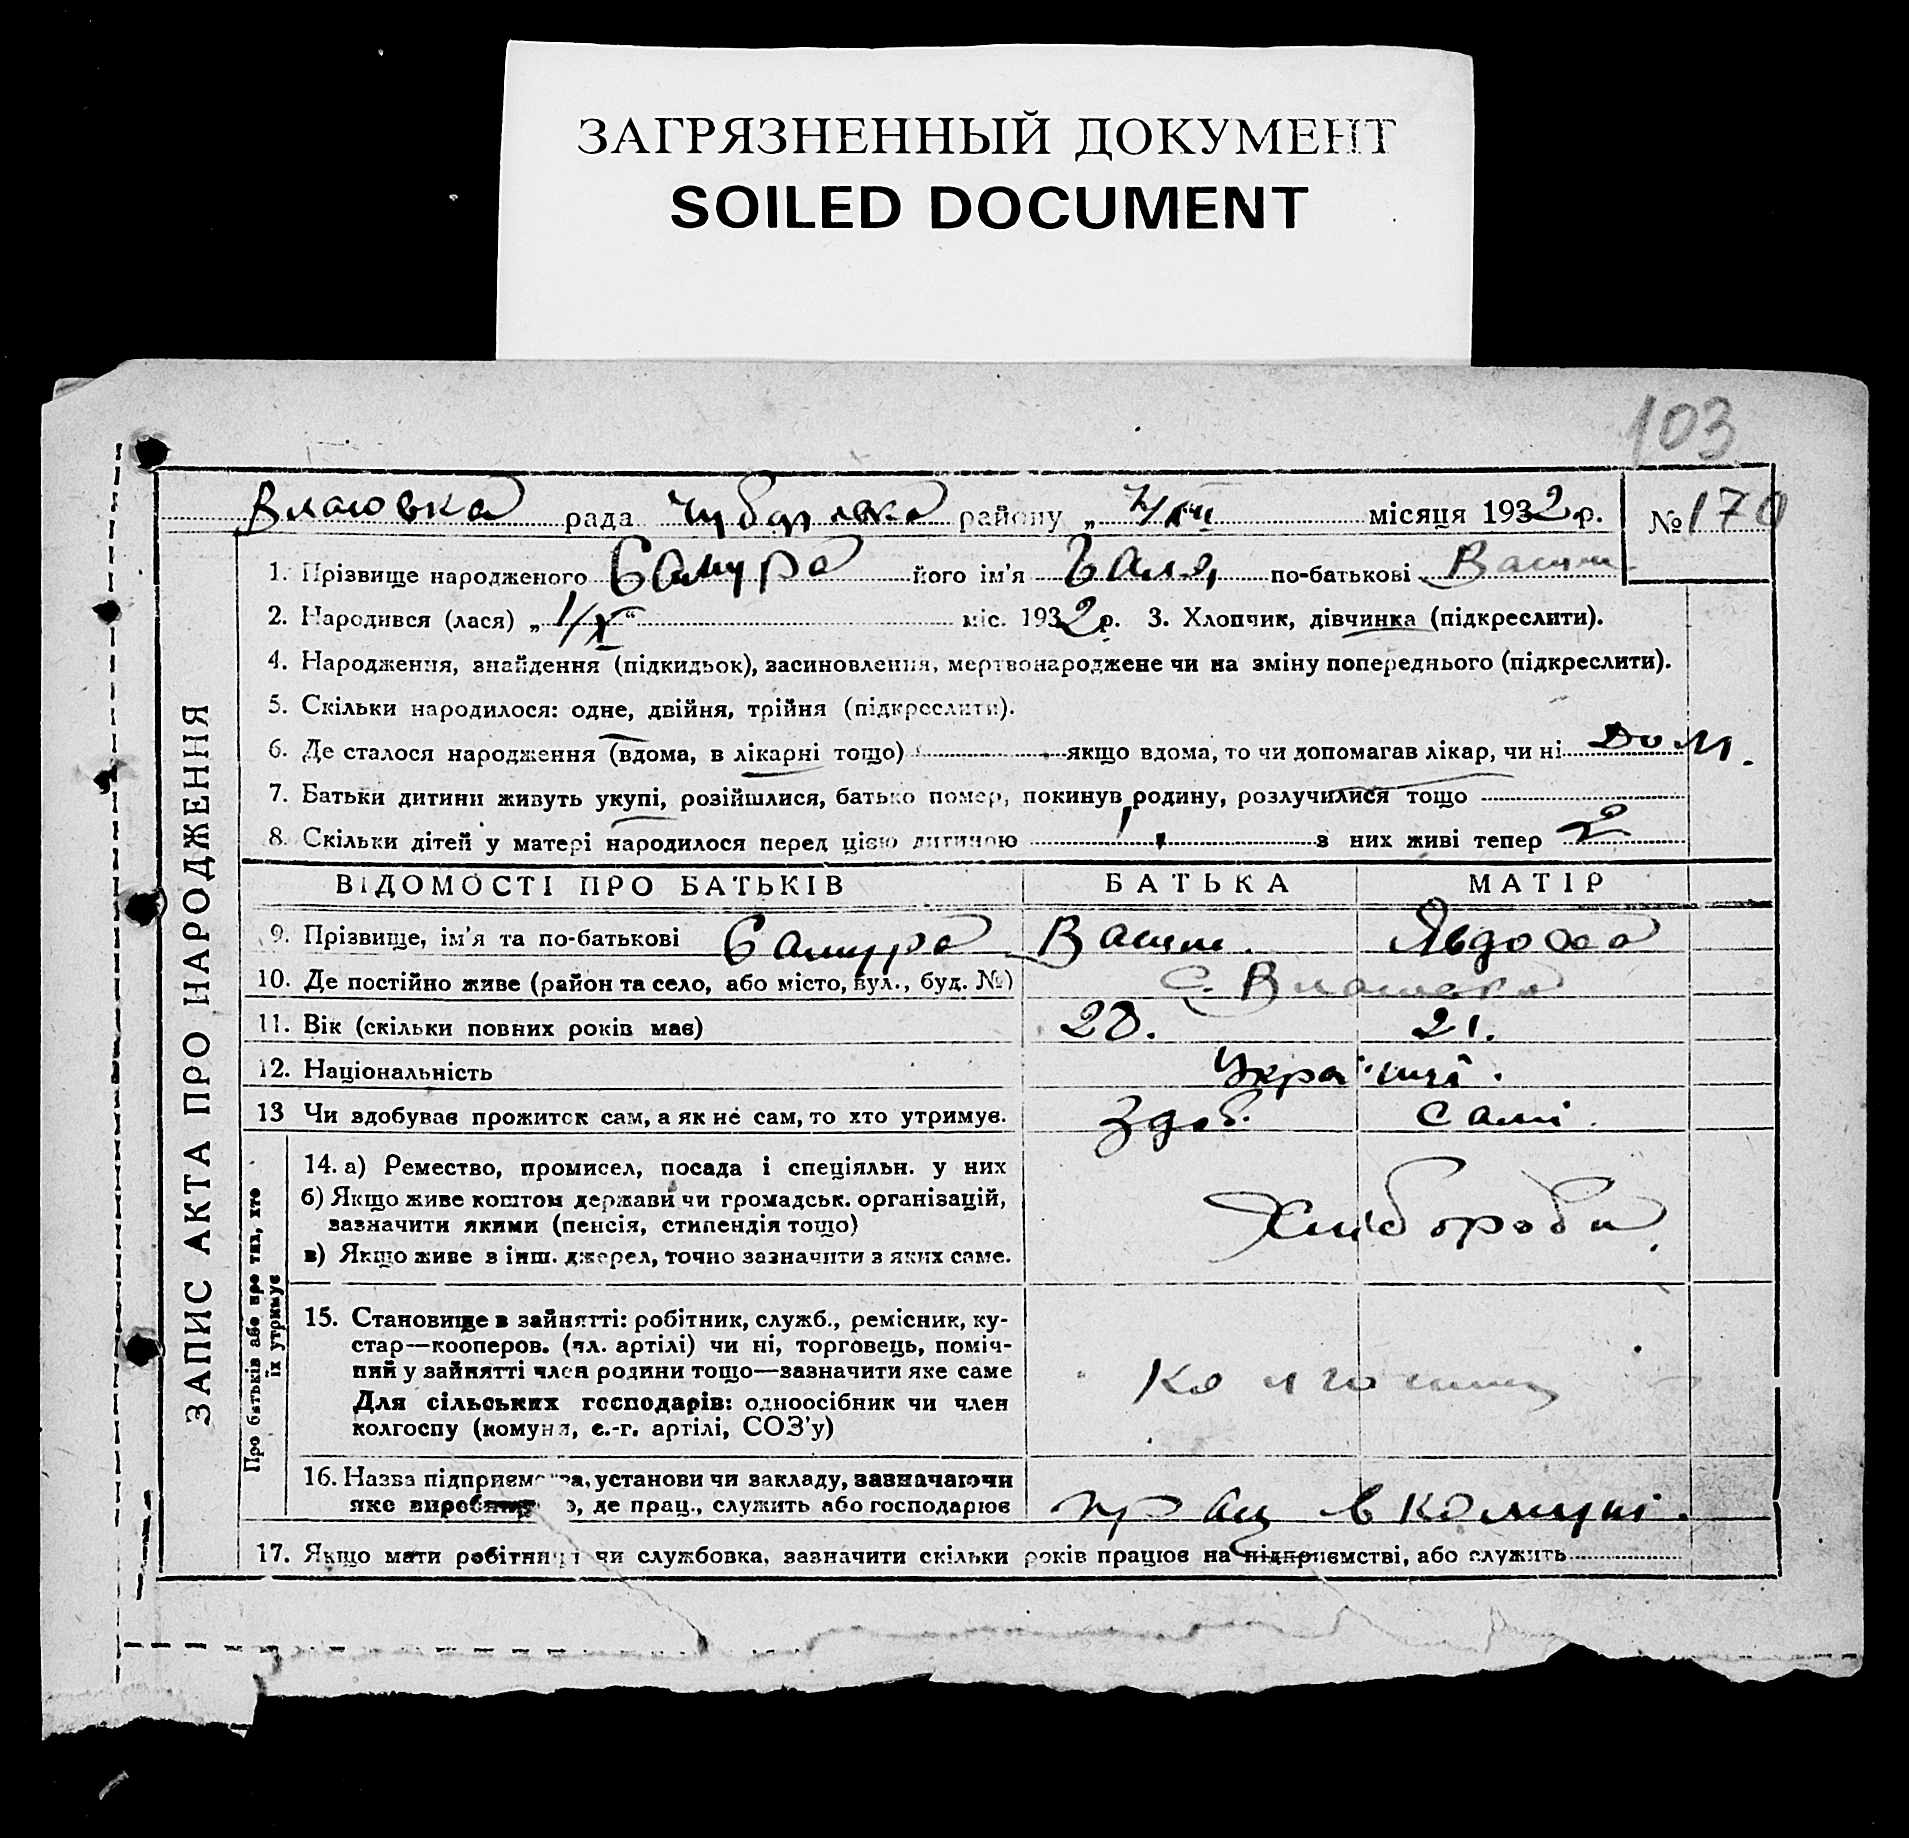 ЗАГРЯЗНЕННЫЙ ДОКУМЕНТ
SOILED DOCUMENT
103
рада району „ місяця 1932 р. № 170
1. Прізвище народженого його ім'я по-батькові Васил
2. Народився (лася) „ 1/X “ міс. 1932 р. 3. Хлопчик, дівчинка (підкреслити).
4. Народження, знайдення (підкидьок), засиновлення, мертвонароджене чи на зміну попереднього (підкреслити).
5. Скільки народилося: одне, двійня, трійня (підкреслити).
6. Де сталося народження (вдома, в лікарні тощо) якщо вдома, то чи допомагав лікар, чи ні Дом.
7. Батьки дитини живуть укупі, розійшлися, батько помер, покинув родину, розлучилися тощо
8. Скільки дітей у матері народилося перед цією дитиною 1 з них живі тепер 2
ЗАПИС АКТА ПРО НАРОДЖЕННЯ
ВІДОМОСТІ ПРО БАТЬКІВ БАТЬКА МАТІР
9. Прізвище, ім'я та по-батькові Васил Явдоха
10. Де постійно живе (район та село, або місто, вул., буд. №) с.
11. Вік (скільки повних років має) 21.
12. Національність
13 Чи здобував прожиток сам, а як не сам, то хто утримує. Здоб. самі.
Про батьків або про тих, хто їх утримує
14. а) Ремество, промисел, посада і спеціяльн. у них
б) Якщо живе коштом держави чи громадськ. організацій,
зазначити якими (пенсія, стипендія тощо)
в) Якщо живе з інш. джерел, точно зазначити з яких саме.
Хлібороби
15. Становище в зайнятті: робітник, служб., ремісник, ку-
стар—кооперов. (чл. артілі) чи ні, торговець, поміч-
ний у зайнятті член родини тощо—зазначити яке саме
Для сільських господарів: одноосібник чи член
колгоспу (комуни, с.-г. артілі, СОЗ'у)
16. Назва підприємства, установи чи закладу, зазначаючи
яке виробництво, де прац., служить або господарює
прац в комуні.
17. Якщо мати робітниця чи службовка, зазначити скільки років працює на підприємстві, або служить